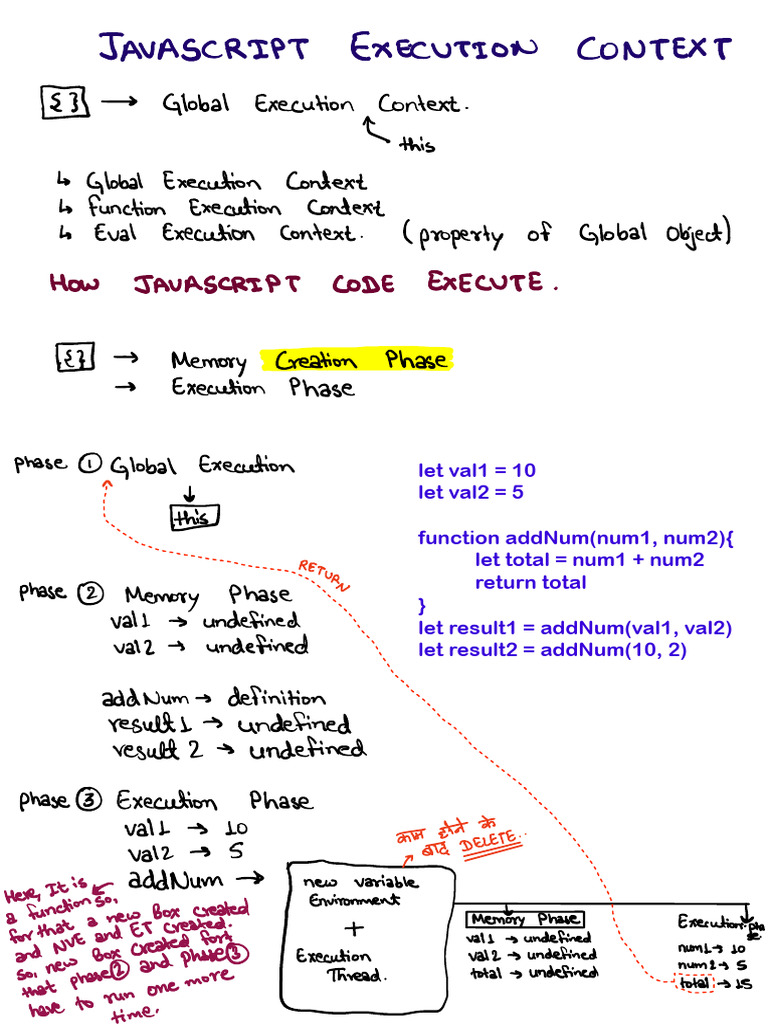 JAVASCRIPT EXECUTION CONTEXT
{} → Global Execution Context.
this
↳ Global Execution Context
↳ function Execution Context
↳ Eval Execution Context. (property of Global Object)
HOW JAVASCRIPT CODE EXECUTE.
{} → Memory Creation Phase
→ Execution Phase
phase ① Global Execution
↓
this
RETURN
let val1 = 10
let val2 = 5
function addNum(num1, num2){
let total = num1 + num2
return total
}
let result1 = addNum(val1, val2)
let result2 = addNum(10, 2)
phase ② Memory Phase
val1 → undefined
val2 → undefined
addNum → definition
result1 → undefined
result 2 → undefined
phase ③ Execution Phase
val1 → 10
val2 → 5
addNum →
Here, It is
a function so,
for that a new Box created
and NVE and ET created.
so, new Box created for
that phase② and phase③
have to run one more
time.
काम होने के
बाद DELETE..
new variable
Environment
+
Execution
Thread.
Memory Phase
val1 → undefined
val2 → undefined
total → undefined
Execution phase.
num1 → 10
num2 → 5
total → 15